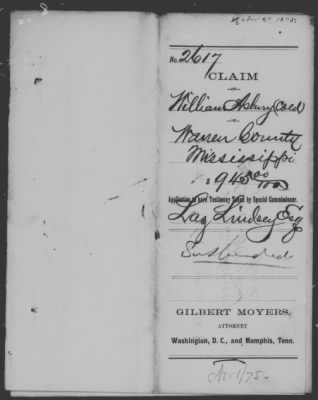 No. 2617
CLAIM
OF
William Asbury (Cold)
OF
Warren County
Mississippi
$945.00
Application to have Testimony Taken by Special Commissioner.
Lindsey Esq
GILBERT MOYERS,
ATTORNEY
Washington, D. C., and Memphis, Tenn.